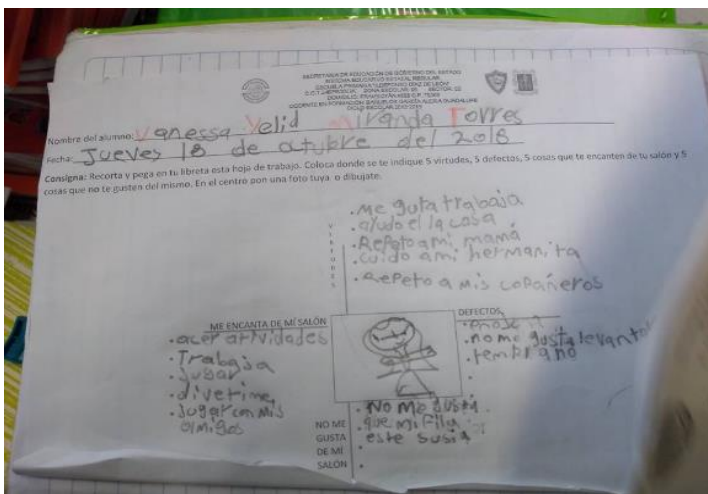 SECRETARÍA DE EDUCACIÓN DE GOBIERNO DEL ESTADO
Nombre del alumno: Vanessa Yelid Miranda Torres
Fecha: Jueves 18 de octubre del 2018
Consigna: Recorta y pega en tu libreta esta hoja de trabajo. Coloca donde se te indique 5 virtudes, 5 defectos, 5 cosas que te encanten de tu salón y 5
cosas que no te gusten del mismo. En el centro pon una foto tuya o dibujate.
VIRTUDES
• Me guta trabaja
• ayudo el la casa
• Repeto a mi mamá
• cuido a mi hermanita
• Repeto a mis copañeros
ME ENCANTA DE MÍ SALÓN
• acer atividades
• Trabaja
• Jugar
• divetime
• Jugar con mis
amigos
DEFECTOS
• no me gusta levanta
• temprano
NO ME
GUSTA
DE MÍ
SALÓN
• No me gusta
• que mi fila
este susia